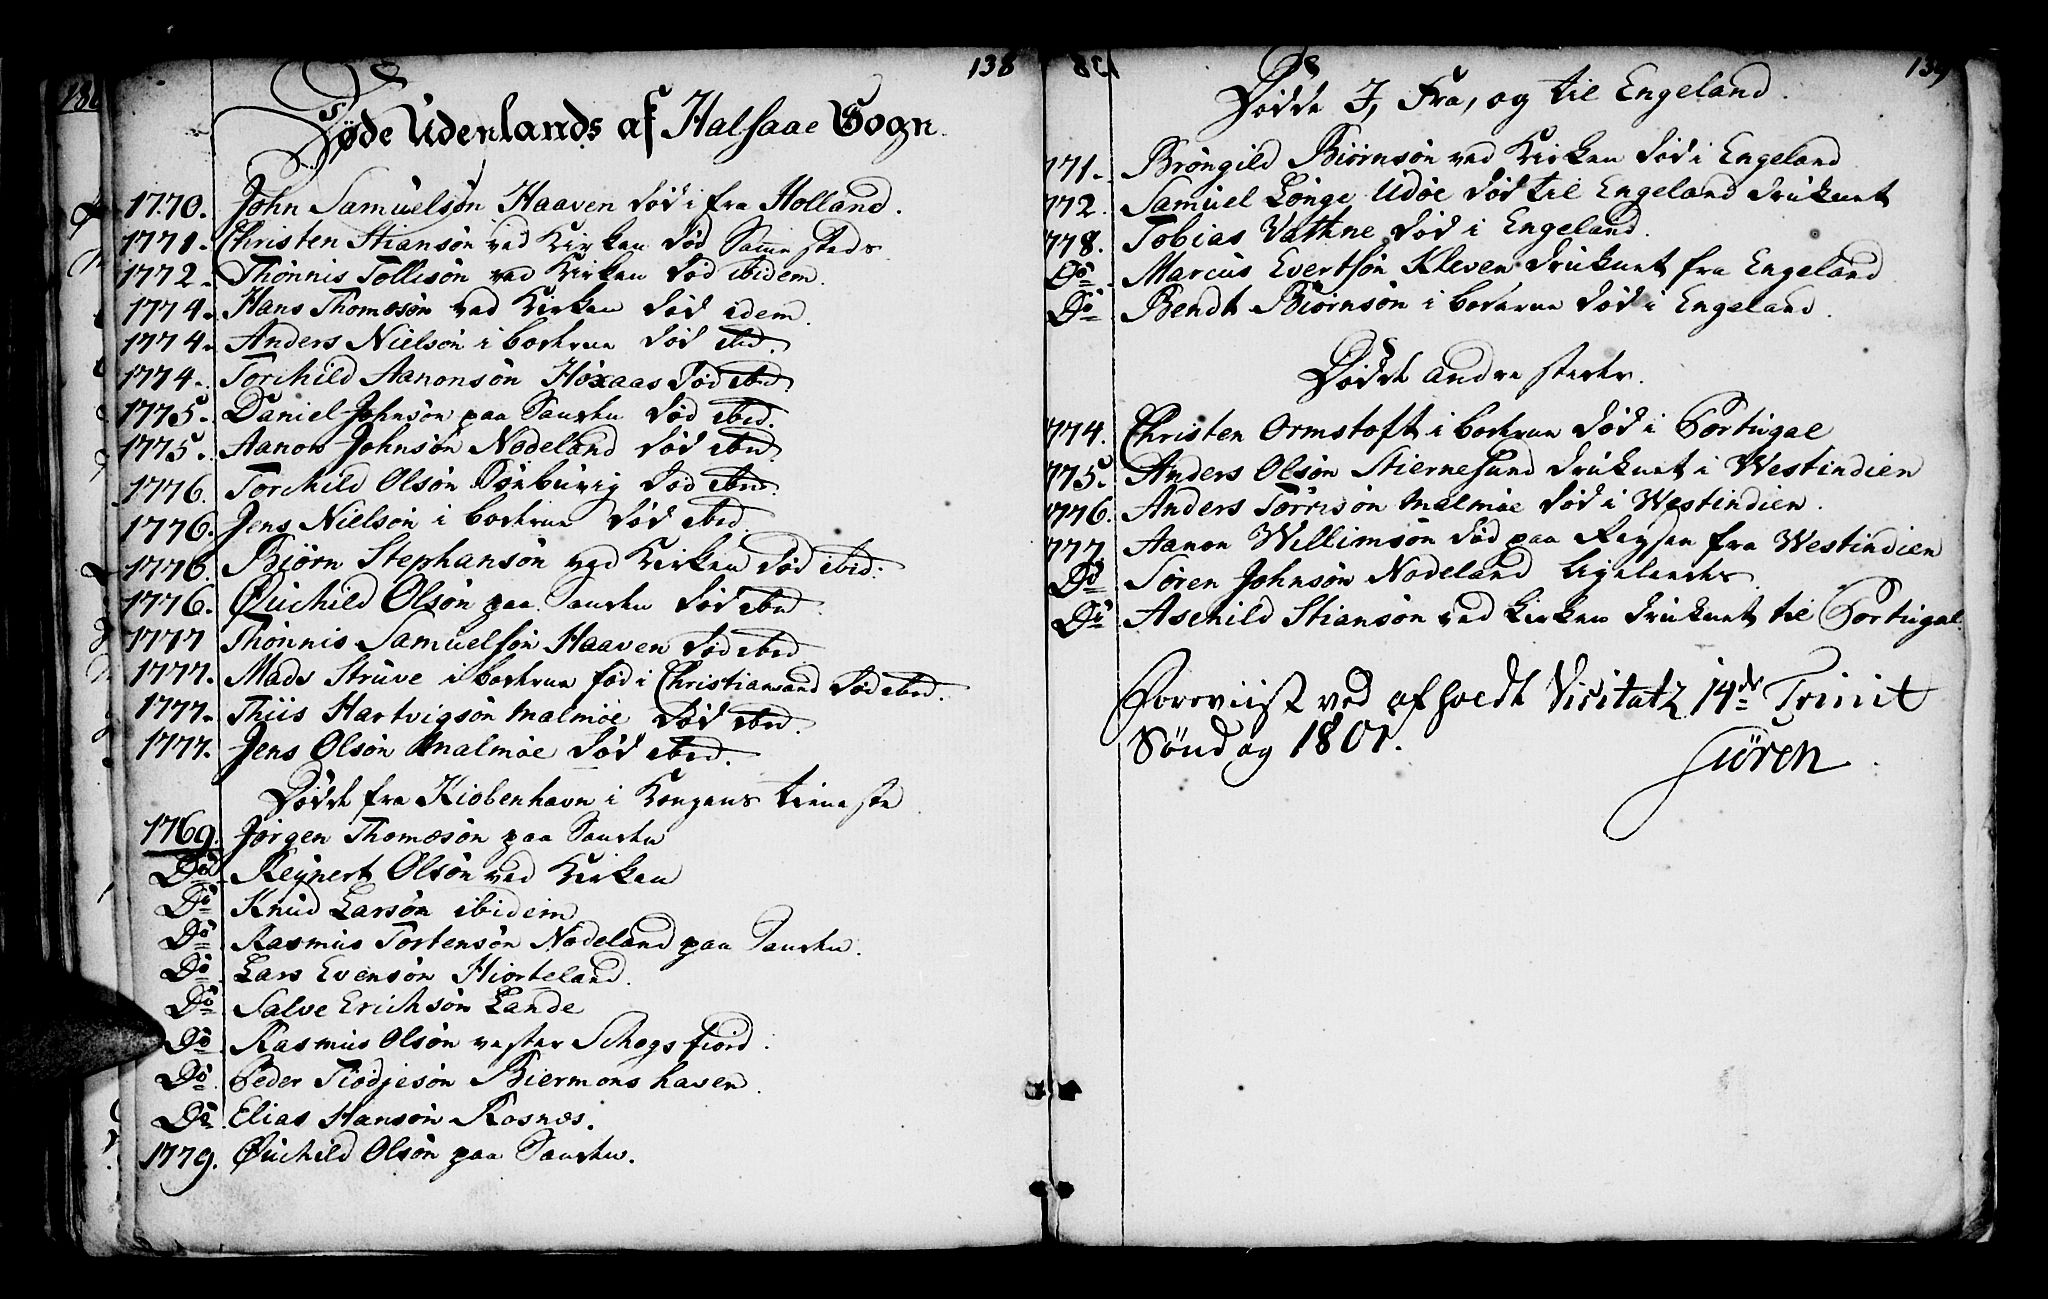 138
Døde Udenlands af Halsaae Sogn.
1770. John Samuelsøn Haaven død i fra Holland.
1771. Christen Stiansøn ved Kirken død Samme steds
1772. Thönnis Tollisøn ved Kirken død ibidem.
1774. Hans Thomæsøn ved Kirken død idem.
1774. Anders Nielsøn i boeherne død ibid.
1774. Torchild Aanonsøn Høxaas død ibid.
1775. Daniel Johnsøn paa Sansku død ibid.
1775. Aanon Johnsøn Nodeland død ibid.
1776. Torchild Olsøn død ibid.
1776. Jens Nielsøn i død ibid.
1776. Biørn Stephansøn ved Kirken død ibid:
1776. Øuchild Olsøn paa død ibid.
1777 Thönnis Samuelsøn Haaven død ibid
1777. Mads Struve i fød i Christiansand død ibid.
1777. Thiis Hartvigsøn Malmøe død ibid.
1777. Jens Olsøn Malmøe død ibid.
Døde fra Kiøbenhavn i Kongens tieneste
1769. Jørgen Thomæsøn paa
Do Reynert Olsøn ved Kirken
Do Knud Larsøn ibidem
Do Rasmus Tortensøn Nodeland paa
Do Lars Evensøn Hiorteland.
Do Salve Erichsøn Lande
Do Rasmus Olsøn vester Schogsfiord.
Do Peder Tiødjesøn Biermonshaven.
Do Elias Hansøn Rosnæs.
1779. Øuchild Olsøn paa
139
Døde I, Fra, og til Engeland.
771. Brøngild Biørnsøn ved Kirken død i Engeland
772. Samuel Longe Udøe død til Engeland druknet
778. Tobias Vathne død i Engeland.
Do Marcus Evertsøn Kleven druknet fra Engeland
Do Bendt Biørnsøn i død i Engeland.
Døde andre steder.
774. Christen Ormstoft i død i Portugal
775. Anders Olsøn Stiernesund druknet i Westindien
776. Anders Tørrisøn Malmøe død i Westindien.
777. Aanon Willimsøn død paa Reysen fra Westindien
Do Søren Johnsøn Nodeland ligeledes
Do Asehild Stiansøn ved Kirken druknet til Portugal.
Foreviist ved afholdt Visitatz 14de Trinit
Søndag 1801.